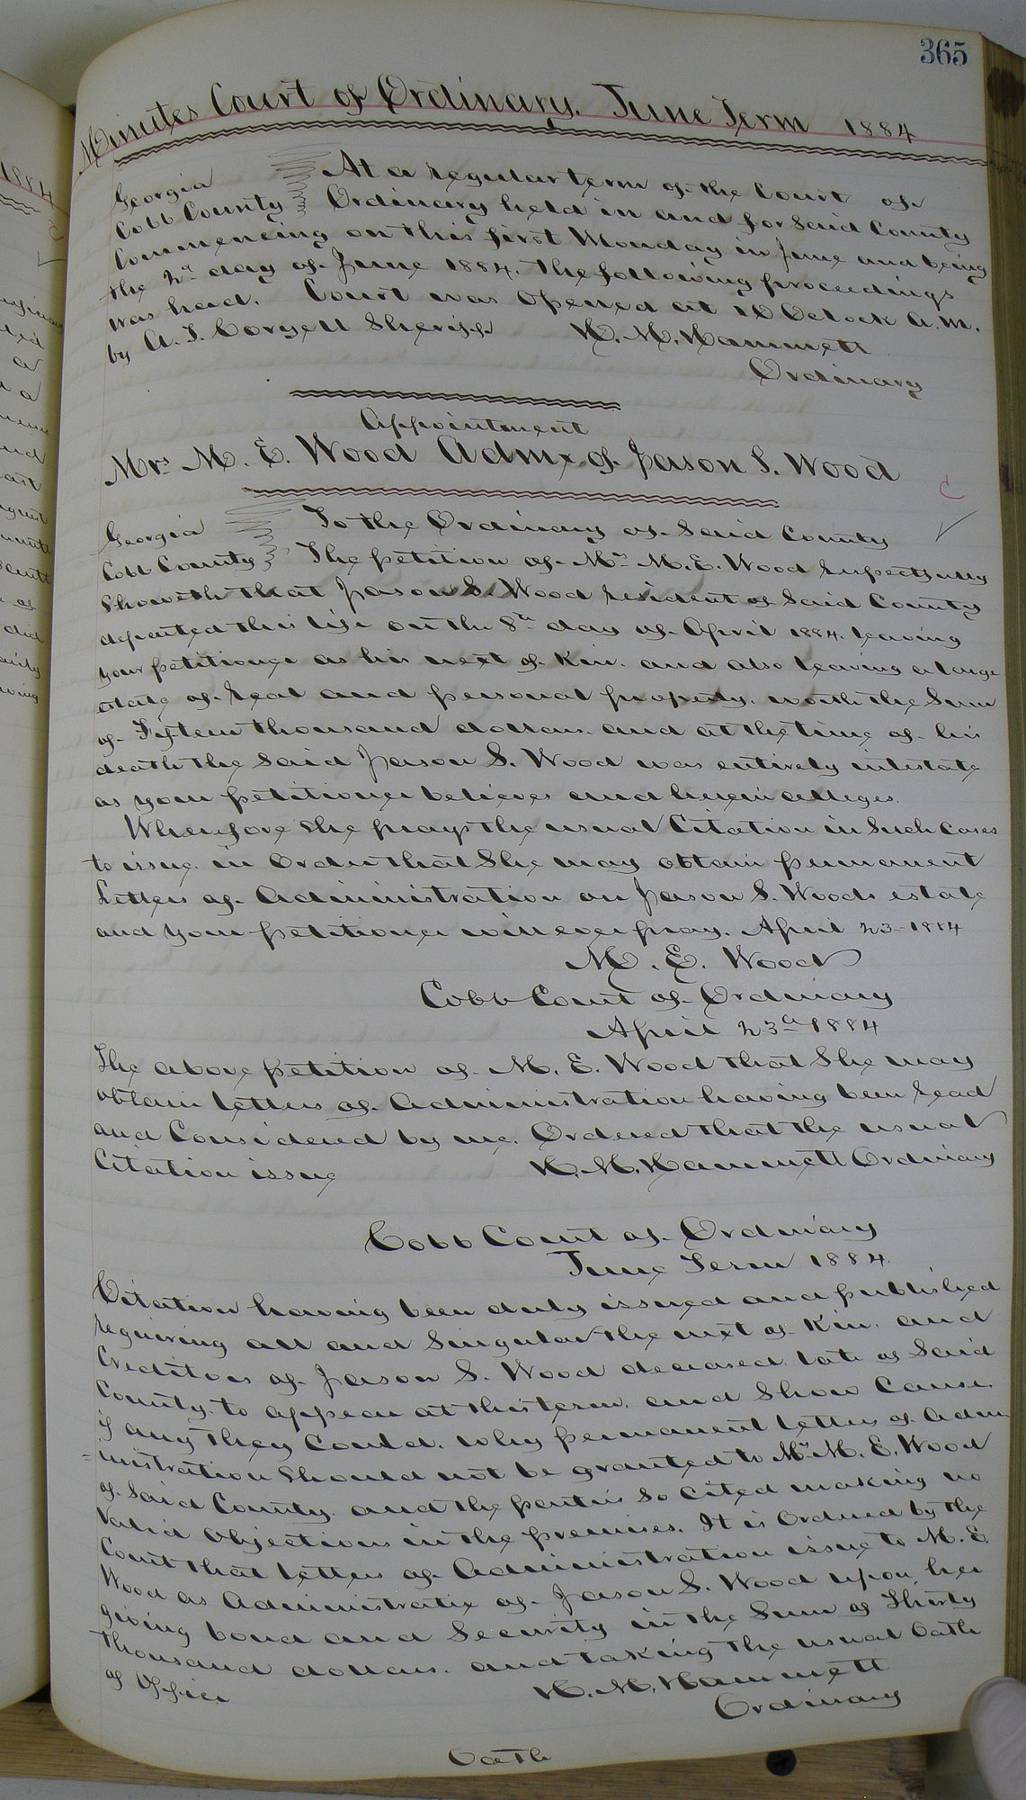 365
Minutes Court of Ordinary, June Term 1884
Georgia At a regular term of the Court of
Cobb County Ordinary held in and for Said County
Commencing on this first Monday in June and being
the 2nd day of June 1884. The following proceedings
was head. Court was Opened at 10 Oclock A.M.
by A. J. Coryell Sheriff H. M. Hammett
Ordinary
Appointment
Mrs M. E. Wood Admx of Jason S. Wood
C
Georgia To the Ordinary of Said County
Cobb County The petition of Mrs M. E. Wood respectfully
Showeth that Jason S. Wood resident of Said County
departed this life on the 8th day of April 1884. leaving
your petitioner as his next of Kin. and also leaving a large
estate of real and personal property. worth the Sum
of Fifteen thousand dollars. and at the time of his
death the Said Jason S. Wood was entirely intestate
as your petitioner believes and herein alleges.
Wherefore She prays the usual Citation in Such Cases
to issue in Order that She may obtain permanent
Letters of Administration on Jason S. Woods estate
and your petitioner will ever pray. April 23 1884
M. E. Wood
Cobb Court of Ordinary
April 23d 1884
The above petition of M. E. Wood that She may
obtain letters of Administration having been read
and Considered by me. Ordered that the usual
Citation issue H. M. Hammett Ordinary
Cobb Court of Ordinary
June Term 1884
Citation having been duly issued and published
requiring all and Singular the next of Kin. and
Creditors of Jason S. Wood deceased late of Said
County to appear at this term. and Show Cause
if any they Could. why permanent letters of Admi
=nistration Should not be granted to Mrs M. E. Wood
of Said County. and the parties So Cited making no
Valid Objections in the premises. It is Ordered by the
Court that letters of Administration issue to M. E.
Wood as Administratix of Jason S. Wood upon her
giving bond and Security in the Sum of Thirty
thousand dollars. and taking the usual Oath
of Office H. M. Hammett
Ordinary
Oath